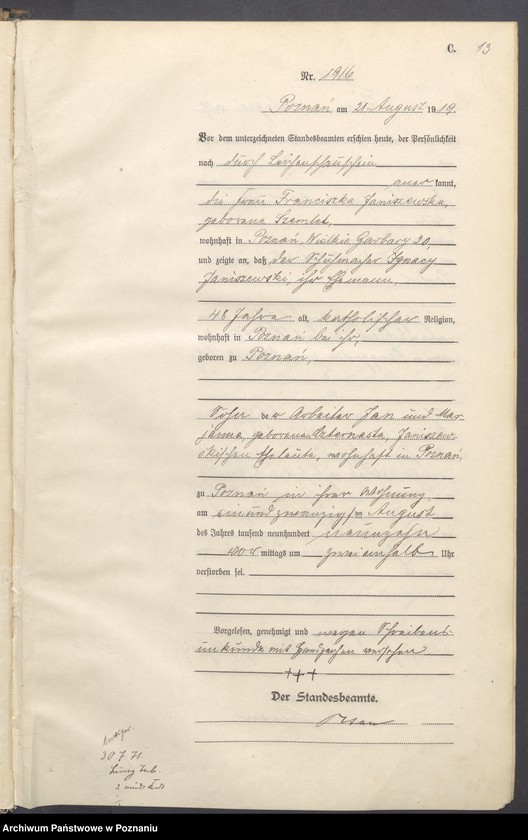 C. 13
Nr. 1916
Poznań am 21. August 1919.
Vor dem unterzeichneten Standesbeamten erschien heute, der Persönlichkeit
nach durch Leichenschauschein
aner kannt,
die Frau Franciszka Janiszewska,
geborene
wohnhaft in Poznań, Wielkie Garbary 20,
und zeigte an, daß der Schuhmacher Ignacy
Janiszewski, ihr Ehemann,
48 Jahre alt, katholischer Religion,
wohnhaft in Poznań bei ihr,
geboren zu Poznań,
Sohn der Arbeiter Jan und Mar-
janna, geborene Janiszew-
skischen Eheleute, wohnhaft in Poznań,
zu Poznań in ihrer Wohnung,
am einundzwanzigsten August
des Jahres tausend neunhundert neunzehn
vor mittags um zweieinhalb Uhr
verstorben sei.
Vorgelesen, genehmigt und wegen Schreibens-
unkunde mit Handzeichen versehen
+++
Der Standesbeamte.
30 7 71.
Archiwum Państwowe w Poznaniu